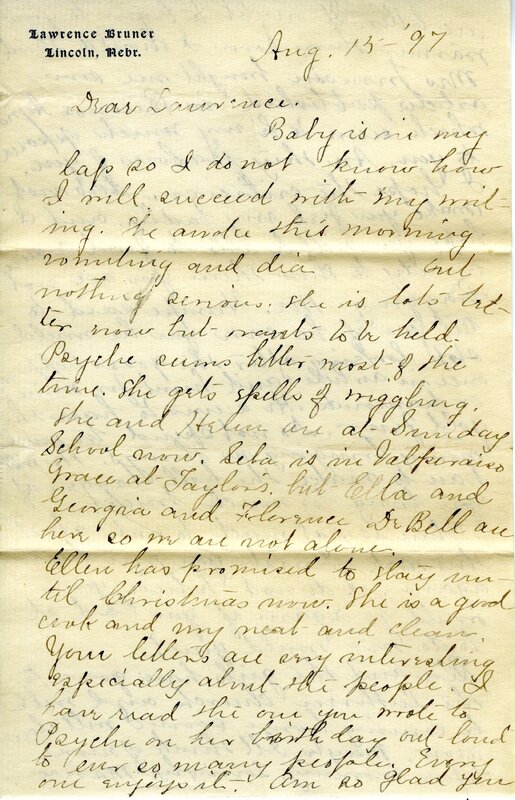 Lawrence Bruner
Lincoln, Nebr.
Aug. 15 - '97
Dear Lawrence.
Baby is in my
lap so I do not know how
I will succeed with my writ-
ing. She awoke this morning
vomiting and dia but
nothing serious. She is lots bet-
ter now but wants to be held.
Psyche seems better most of the
time. She gets spells of wiggling.
She and Helen are at Sunday
School now. Seba is in Valparaiso
Grace at Taylors. but Ella and
Georgia and Florence De Bell are
here so we are not alone.
Ellen has promised to stay un-
til Christmas now. She is a good
cook and my neat and clean.
Your letters are very interesting
especially about the people. I
have read the one you wrote to
Psyche on her birthday out loud
to so many people. Every
one enjoys it. Am so glad you